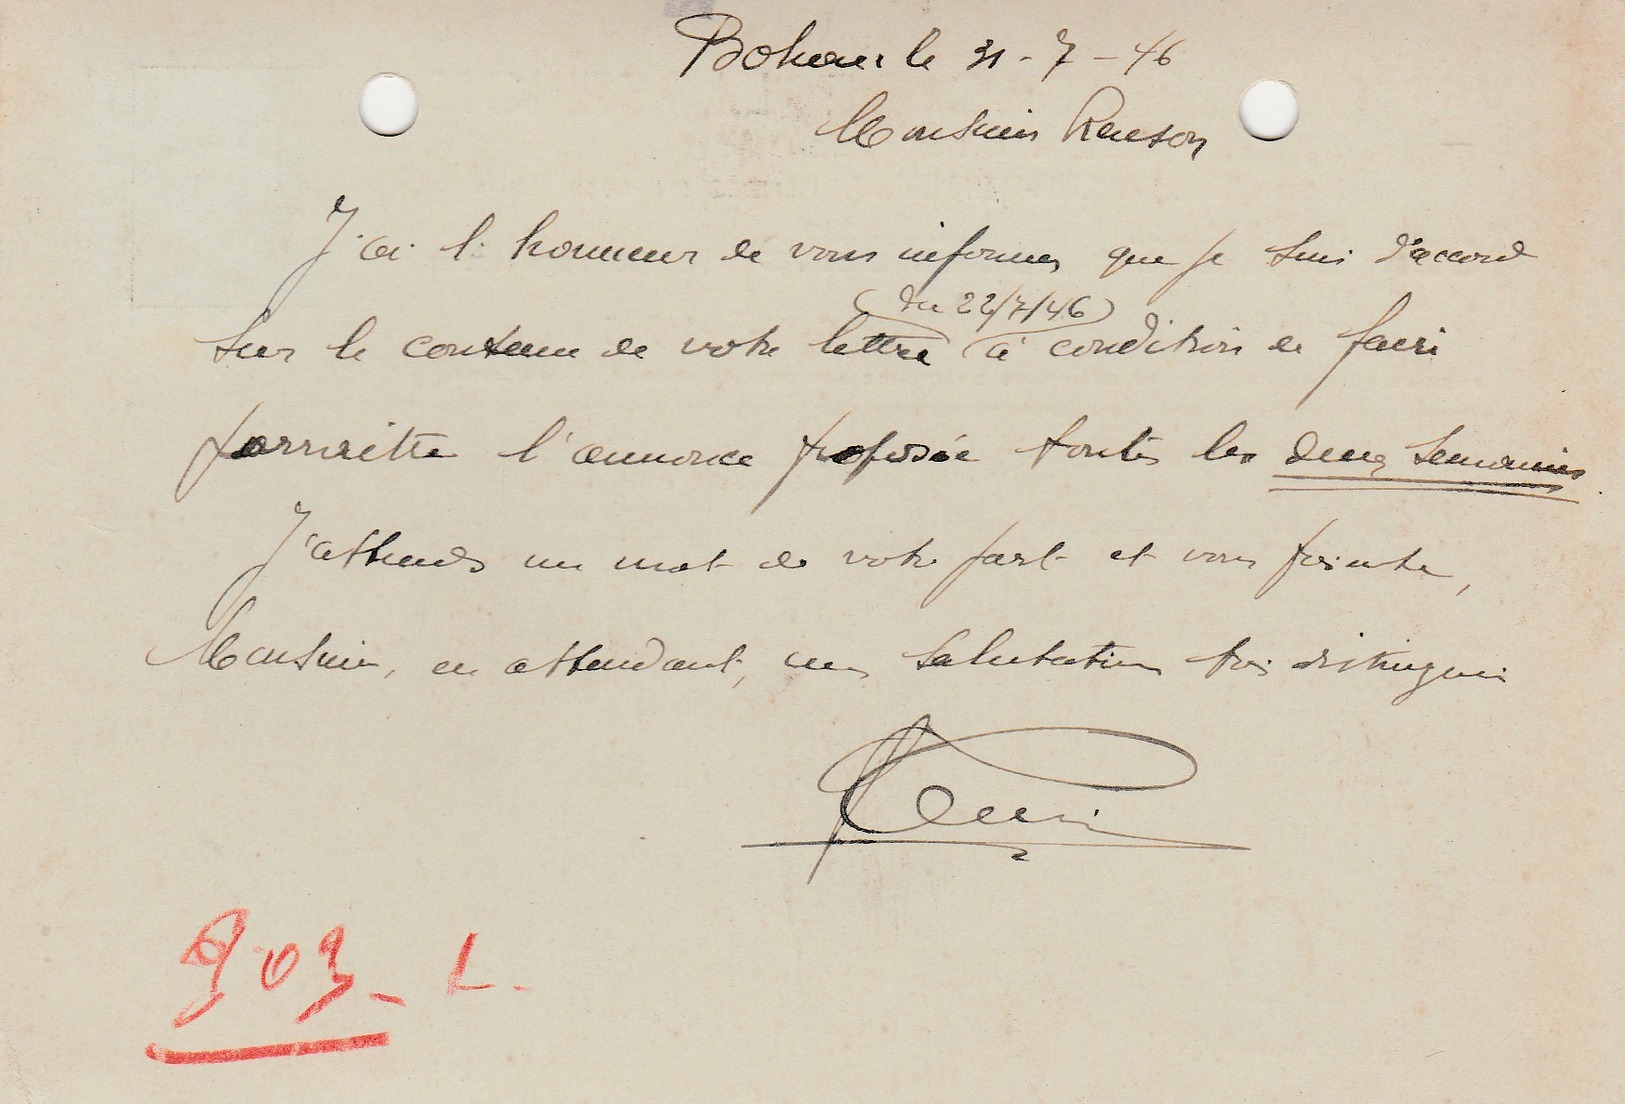 Bohan le 31-7-46
Monsieur Renson
J'ai l'honneur de vous informer que je suis d'accord
(du 22/7/46)
sur le contenu de votre lettre à condition de faire
parraître l'annonce proposée toutes les deux semaines.
J'attends un mot de votre part et vous présente,
Monsieur, en attendant, mes salutations très distinguées
903 - L.